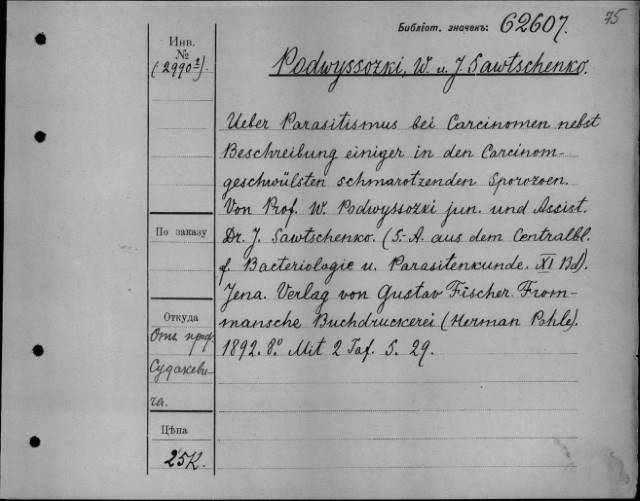 75
Библіот. значекъ: 62607.
Инв.
№
(2990²).
Podwyssozki, W. u. J Sawtschenko.
Ueber Parasitismus bei Carcinomen nebst
Beschreibung einiger in den Carcinom-
geschwülsten schmarotzenden Sporozoen.
Von Prof. W. Podwyssozki jun. und Assist.
По заказу
Dr. J. Sawtschenko. (S.-A. aus dem Centralbl.
f. Bacteriologie u. Parasitenkunde. XI Bd).
Jena. Verlag von Gustav Fischer. From-
mansche Buchdruckerei (Herman Pohle).
1892. 8º. Mit 2 Taf. S. 29.
Откуда
Отъ проф.
Судакеви-
ча.
Цѣна
25к.